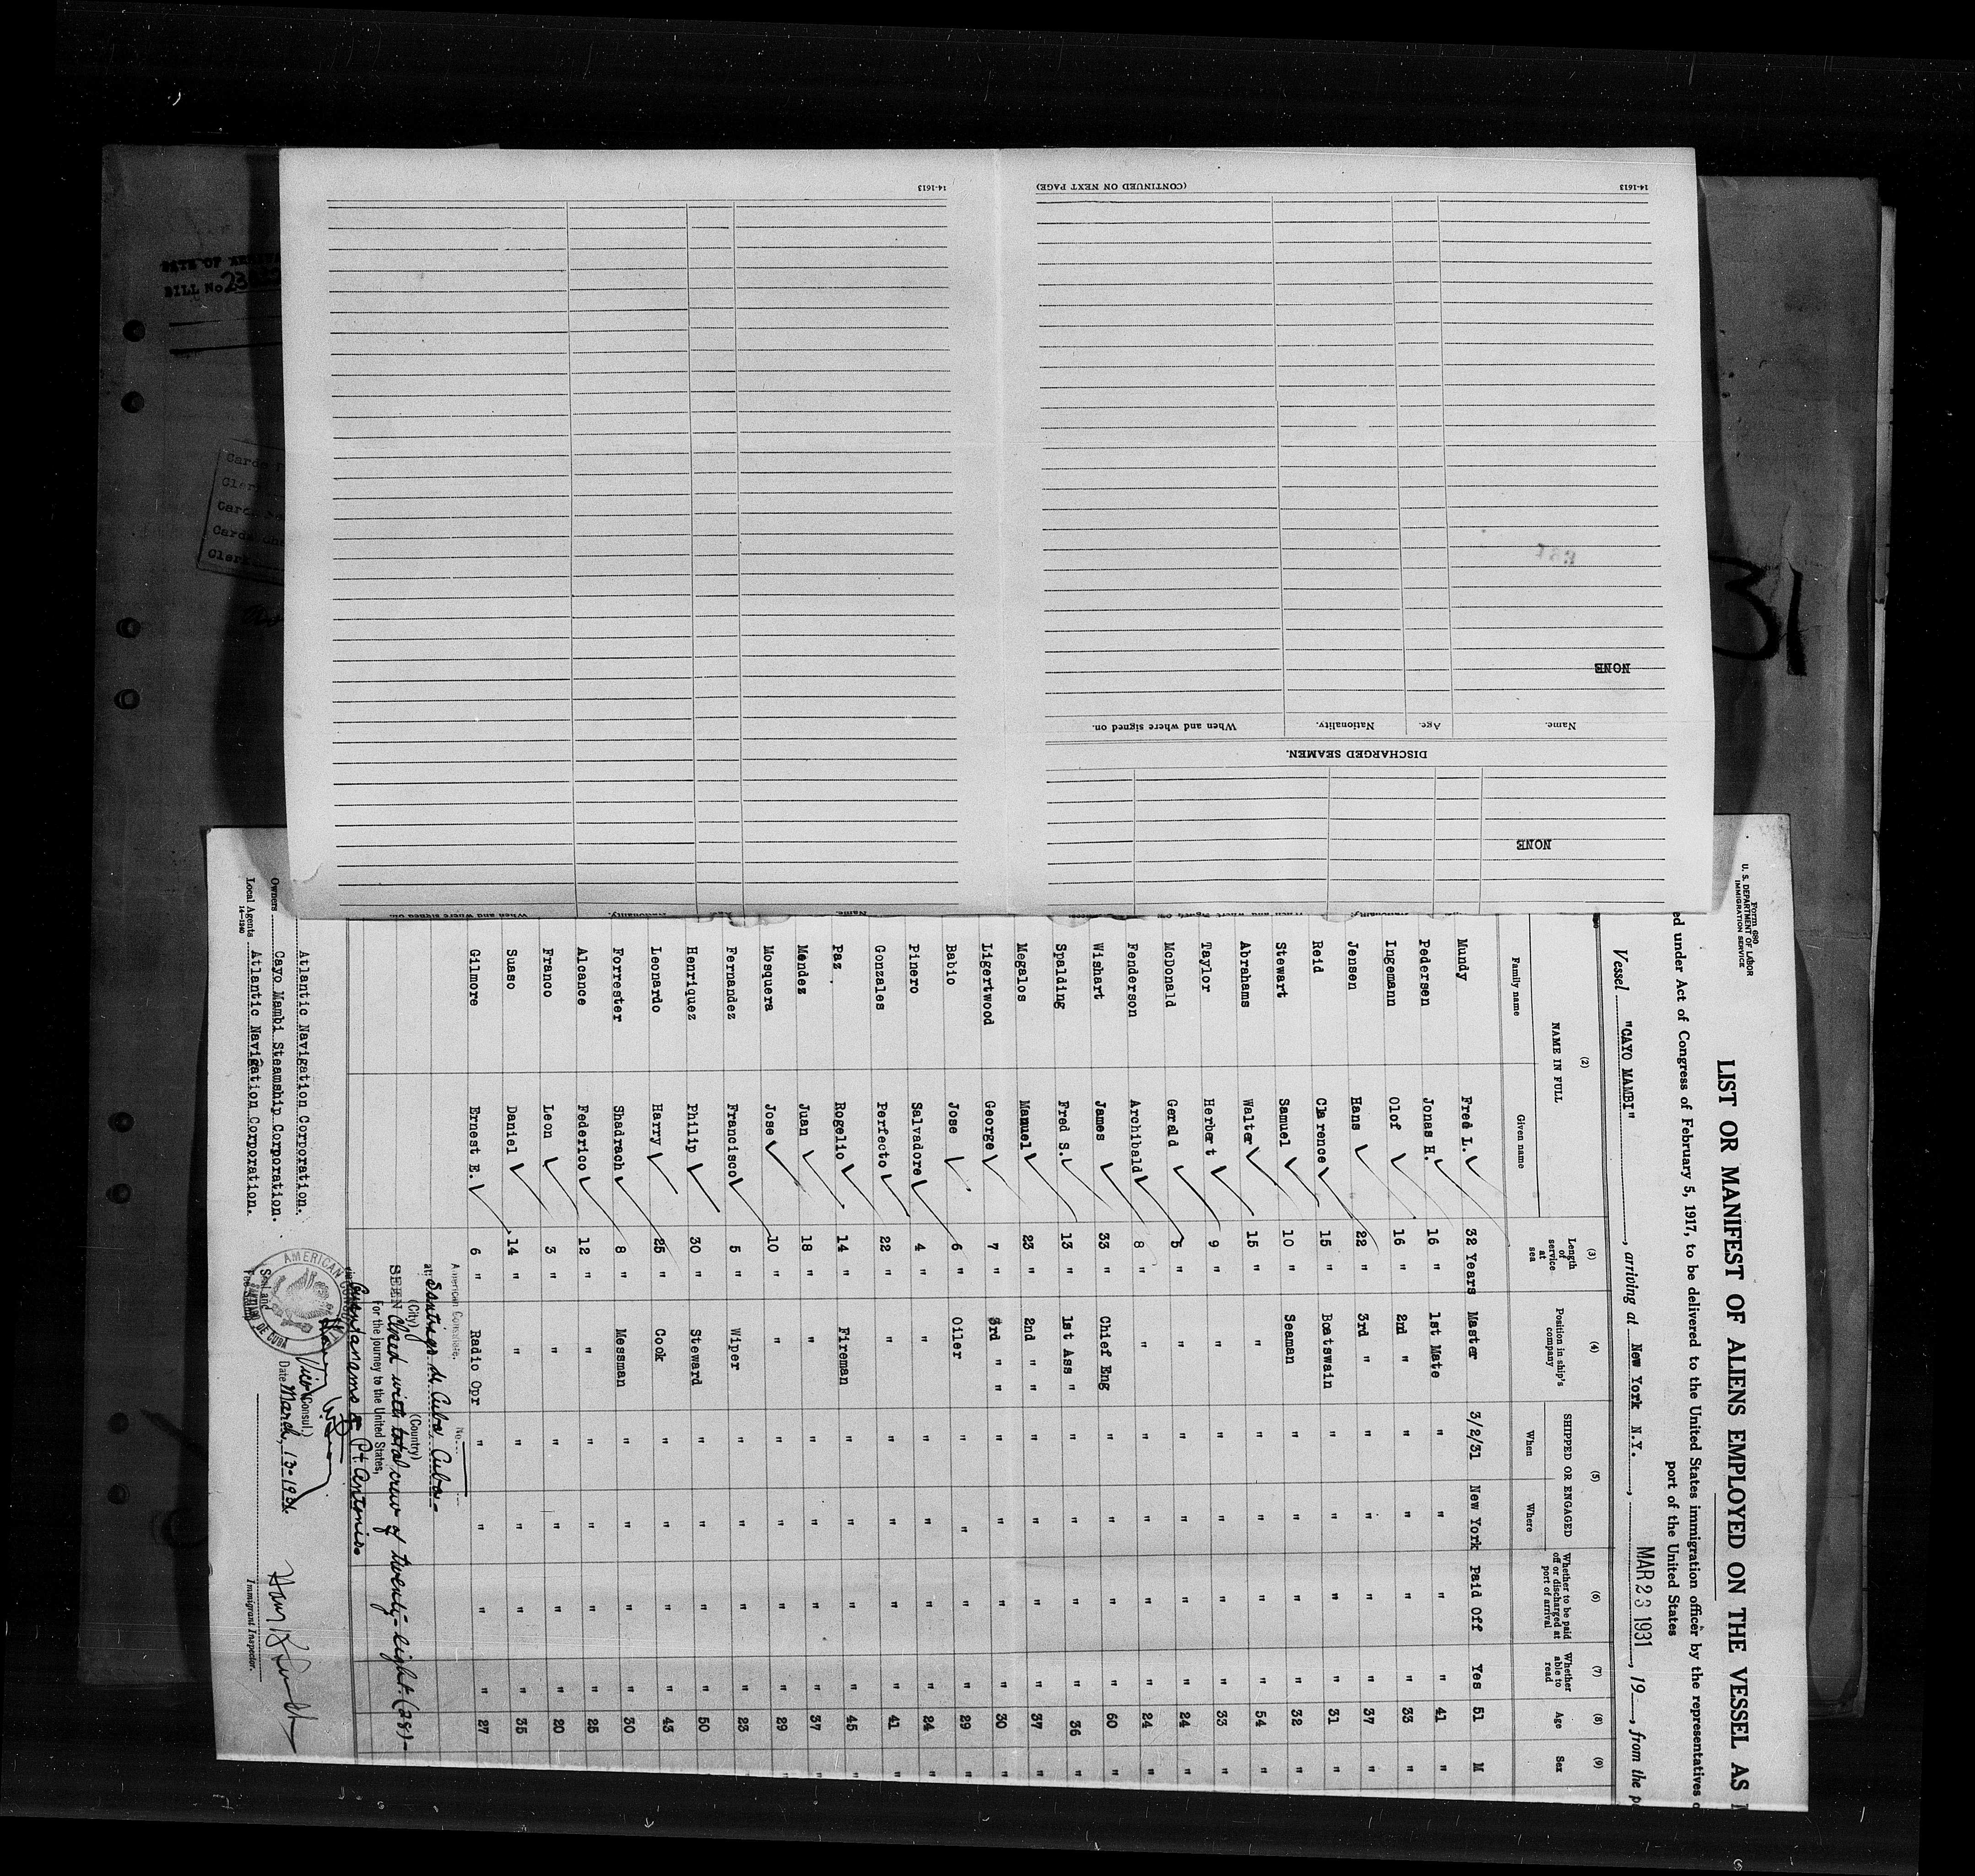 Form 680
U. S. DEPARTMENT OF LABOR
IMMIGRATION SERVICE
LIST OR MANIFEST OF ALIENS EMPLOYED ON THE VESSEL AS
ed under Act of Congress of February 5, 1917, to be delivered to the United States immigration officer by the representatives
port of the United States
Vessel "CAYO MAMBI", arriving at New York N.Y., MAR 23 1931, 19, from the
(2) (3) (4) (5) (6) (7) (8) (9)
NAME IN FULL
Family name Given name
Length of service at sea
Position in ship's company
SHIPPED OR ENGAGED
When Where
Whether to be paid off or discharged at port of arrival
Whether able to read
Age
Sex
Mundy Fred L. 32 Years Master 3/2/31 New York Paid Off Yes 51 M
Pedersen Jonas H. 16 " 1st Mate " " " " 41 "
Ingemann Olof 16 " 2nd " " " " " 33 "
Jensen Hans 22 " 3rd " " " " " 37 "
Reid Clarence 15 " Boatswain " " " " 31 "
Stewart Samuel 10 " Seaman " " " " 32 "
Abrahams Walter 15 " " " " " " 54 "
Taylor Herbert 9 " " " " " " 33 "
McDonald Gerald 5 " " " " " " 24 "
Fenderson Archibald 8 " " " " " " 24 "
Wishart James 33 " Chief Eng " " " " 60 "
Spalding Fred S. 13 " 1st Ass " " " " " 36 "
Megalos Manuel 23 " 2nd " " " " " " 37 "
Ligertwood George 7 " 3rd " " " " " " 30 "
Babio Jose 6 " Oiler " " " " 29 "
Pinero Salvadore 4 " " " " " " 24 "
Gonzales Perfecto 22 " " " " " " 41 "
Paz Rogelio 14 " Fireman " " " " 45 "
Mendez Juan 18 " " " " " " 37 "
Mosquera Jose 10 " " " " " " 29 "
Fernandez Francisco 5 " Wiper " " " " 23 "
Henriquez Philip 30 " Steward " " " " 50 "
Leonardo Harry 25 " Cook " " " " 43 "
Forrester Shadrach 8 " Messman " " " " 30 "
Alcance Federico 12 " " " " " " 25 "
Franco Leon 3 " " " " " " 20 "
Suaso Daniel 14 " " " " " " 35 "
Gilmore Ernest E. 6 " Radio Opr " " " " 27 "
American Consulate. No.
at Santiago de Cuba, Cuba
(City) (Country)
SEEN with total crew of twenty-eight (28)
For the journey to the United States,
via Guantanamo & Pt Antonio
Vice Consul.
Date March, 13-1931.
AMERICAN CONSUL
DE CUBA
Seal and
Fee Stamp
Atlantic Navigation Corporation.
Owners Cayo Mambi Steamship Corporation.
Local Agents Atlantic Navigation Corporation.
14-1240
Immigrant Inspector.
NONE
DISCHARGED SEAMEN.
Name. Age. Nationality. When and where signed on.
NONE
(CONTINUED ON NEXT PAGE)
14-1613
14-1613
Name. Nationality. When and where signed on.
BILL No
31